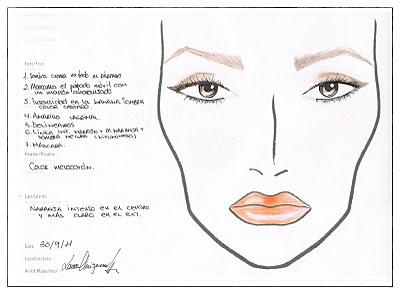 Eyes/Yeux
1. Sombra crema en todo el párpado
2. Marcamos el párpado móvil con
un marrón
3. Intensidad en la banana. Sombra
color
4. Amarillo lagrimal.
5. Delineamos
6. Línea inf. marrón + M. naranja +
sombra negra (difuminamos)
7. Máscara.
Powder/Poudre
Color melocotón.
Lips/Lèvres
Naranja intenso en el centro
y más claro en el ext.
Date 30/9/11
Artist/Maquilleur